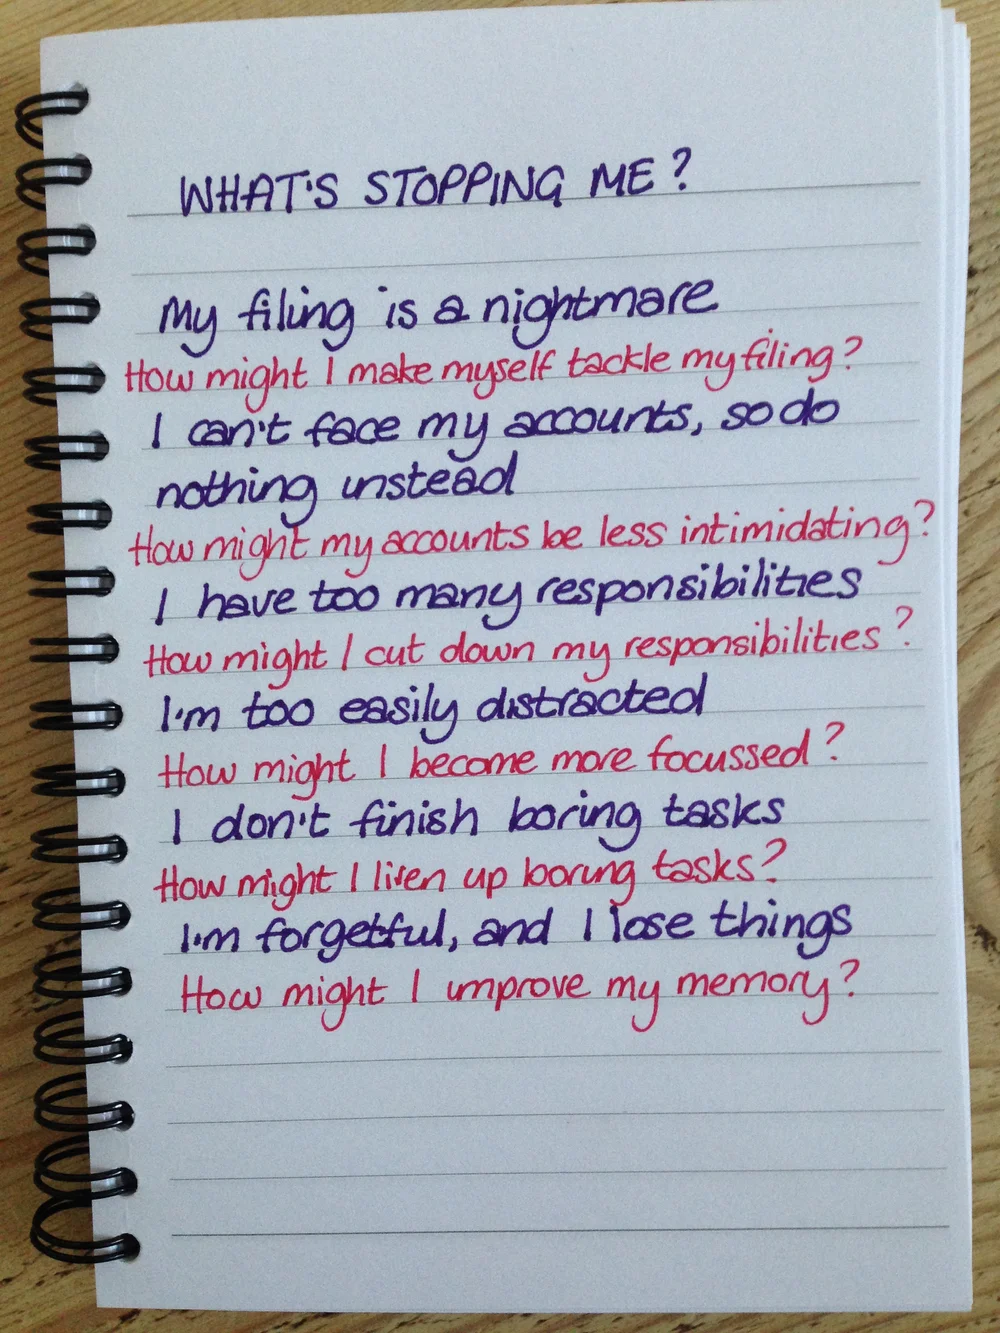 WHAT'S STOPPING ME?
My filing is a nightmare
How might I make myself tackle my filing?
I can't face my accounts, so do
nothing instead
How might my accounts be less intimidating?
I have too many responsibilities
How might I cut down my responsibilities?
I'm too easily distracted
How might I become more focussed?
I don't finish boring tasks
How might I liven up boring tasks?
I'm forgetful, and I lose things
How might I improve my memory?